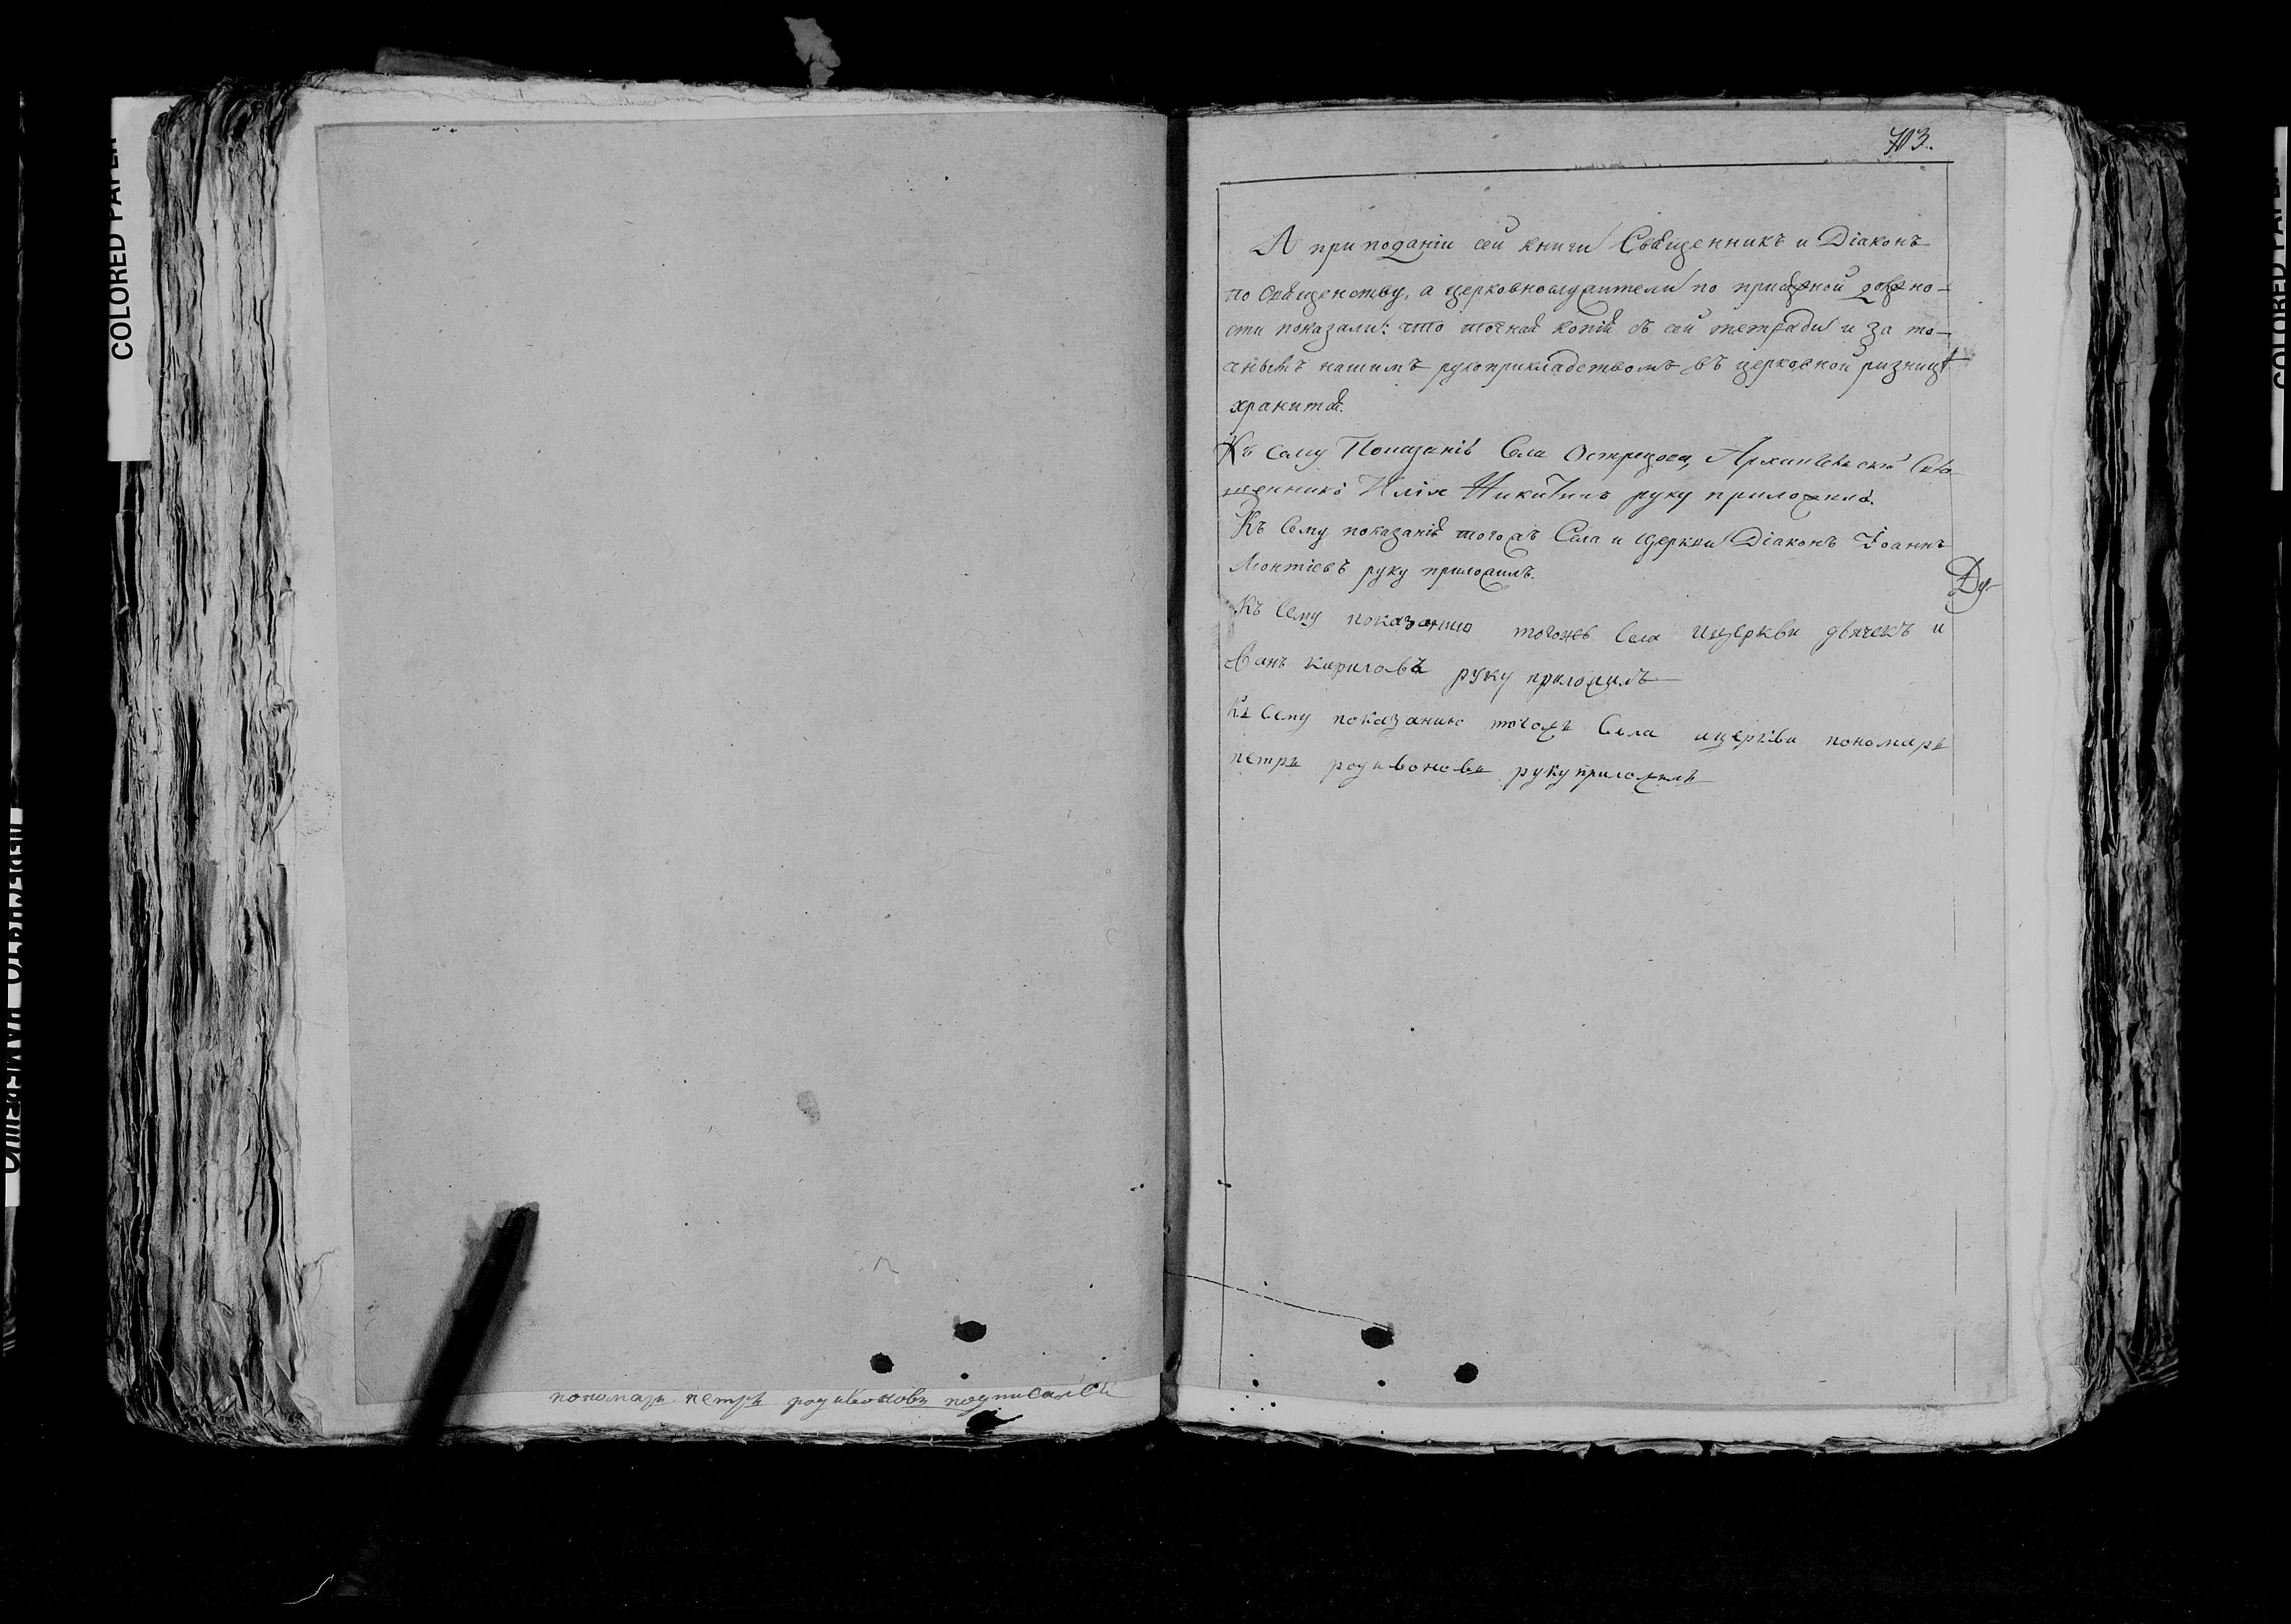 пономарь петръ родивоновъ подписалсѧ
703.
А при поданіи сеи книги Свѧщенникъ и Діаконъ
по свѧщенству, а церковнослужители по присѧжной должно-
сти показали: что точнаѧ копіѧ съ сей тетради и за то-
чнымъ нашимъ рукоприкладствомъ въ церковной ризницѣ
хранитсѧ.
Къ сему Показанію Села Острецова, Архангельскій Свѧ-
щенникъ Илія Никитинъ руку приложилъ.
Къ Сему показанію тогожъ Села и Церкви Діаконъ Іоаннъ
Леонтіевъ руку приложилъ.
Ду-
Къ Сему показанию тогожъ Села ицеркви дьячекъ и
ванъ кириловъ руку приложилъ
Къ Сему показанию тогожъ Села ицеркви пономарь
петръ родивоновъ руку приложилъ
COLORED PAPER